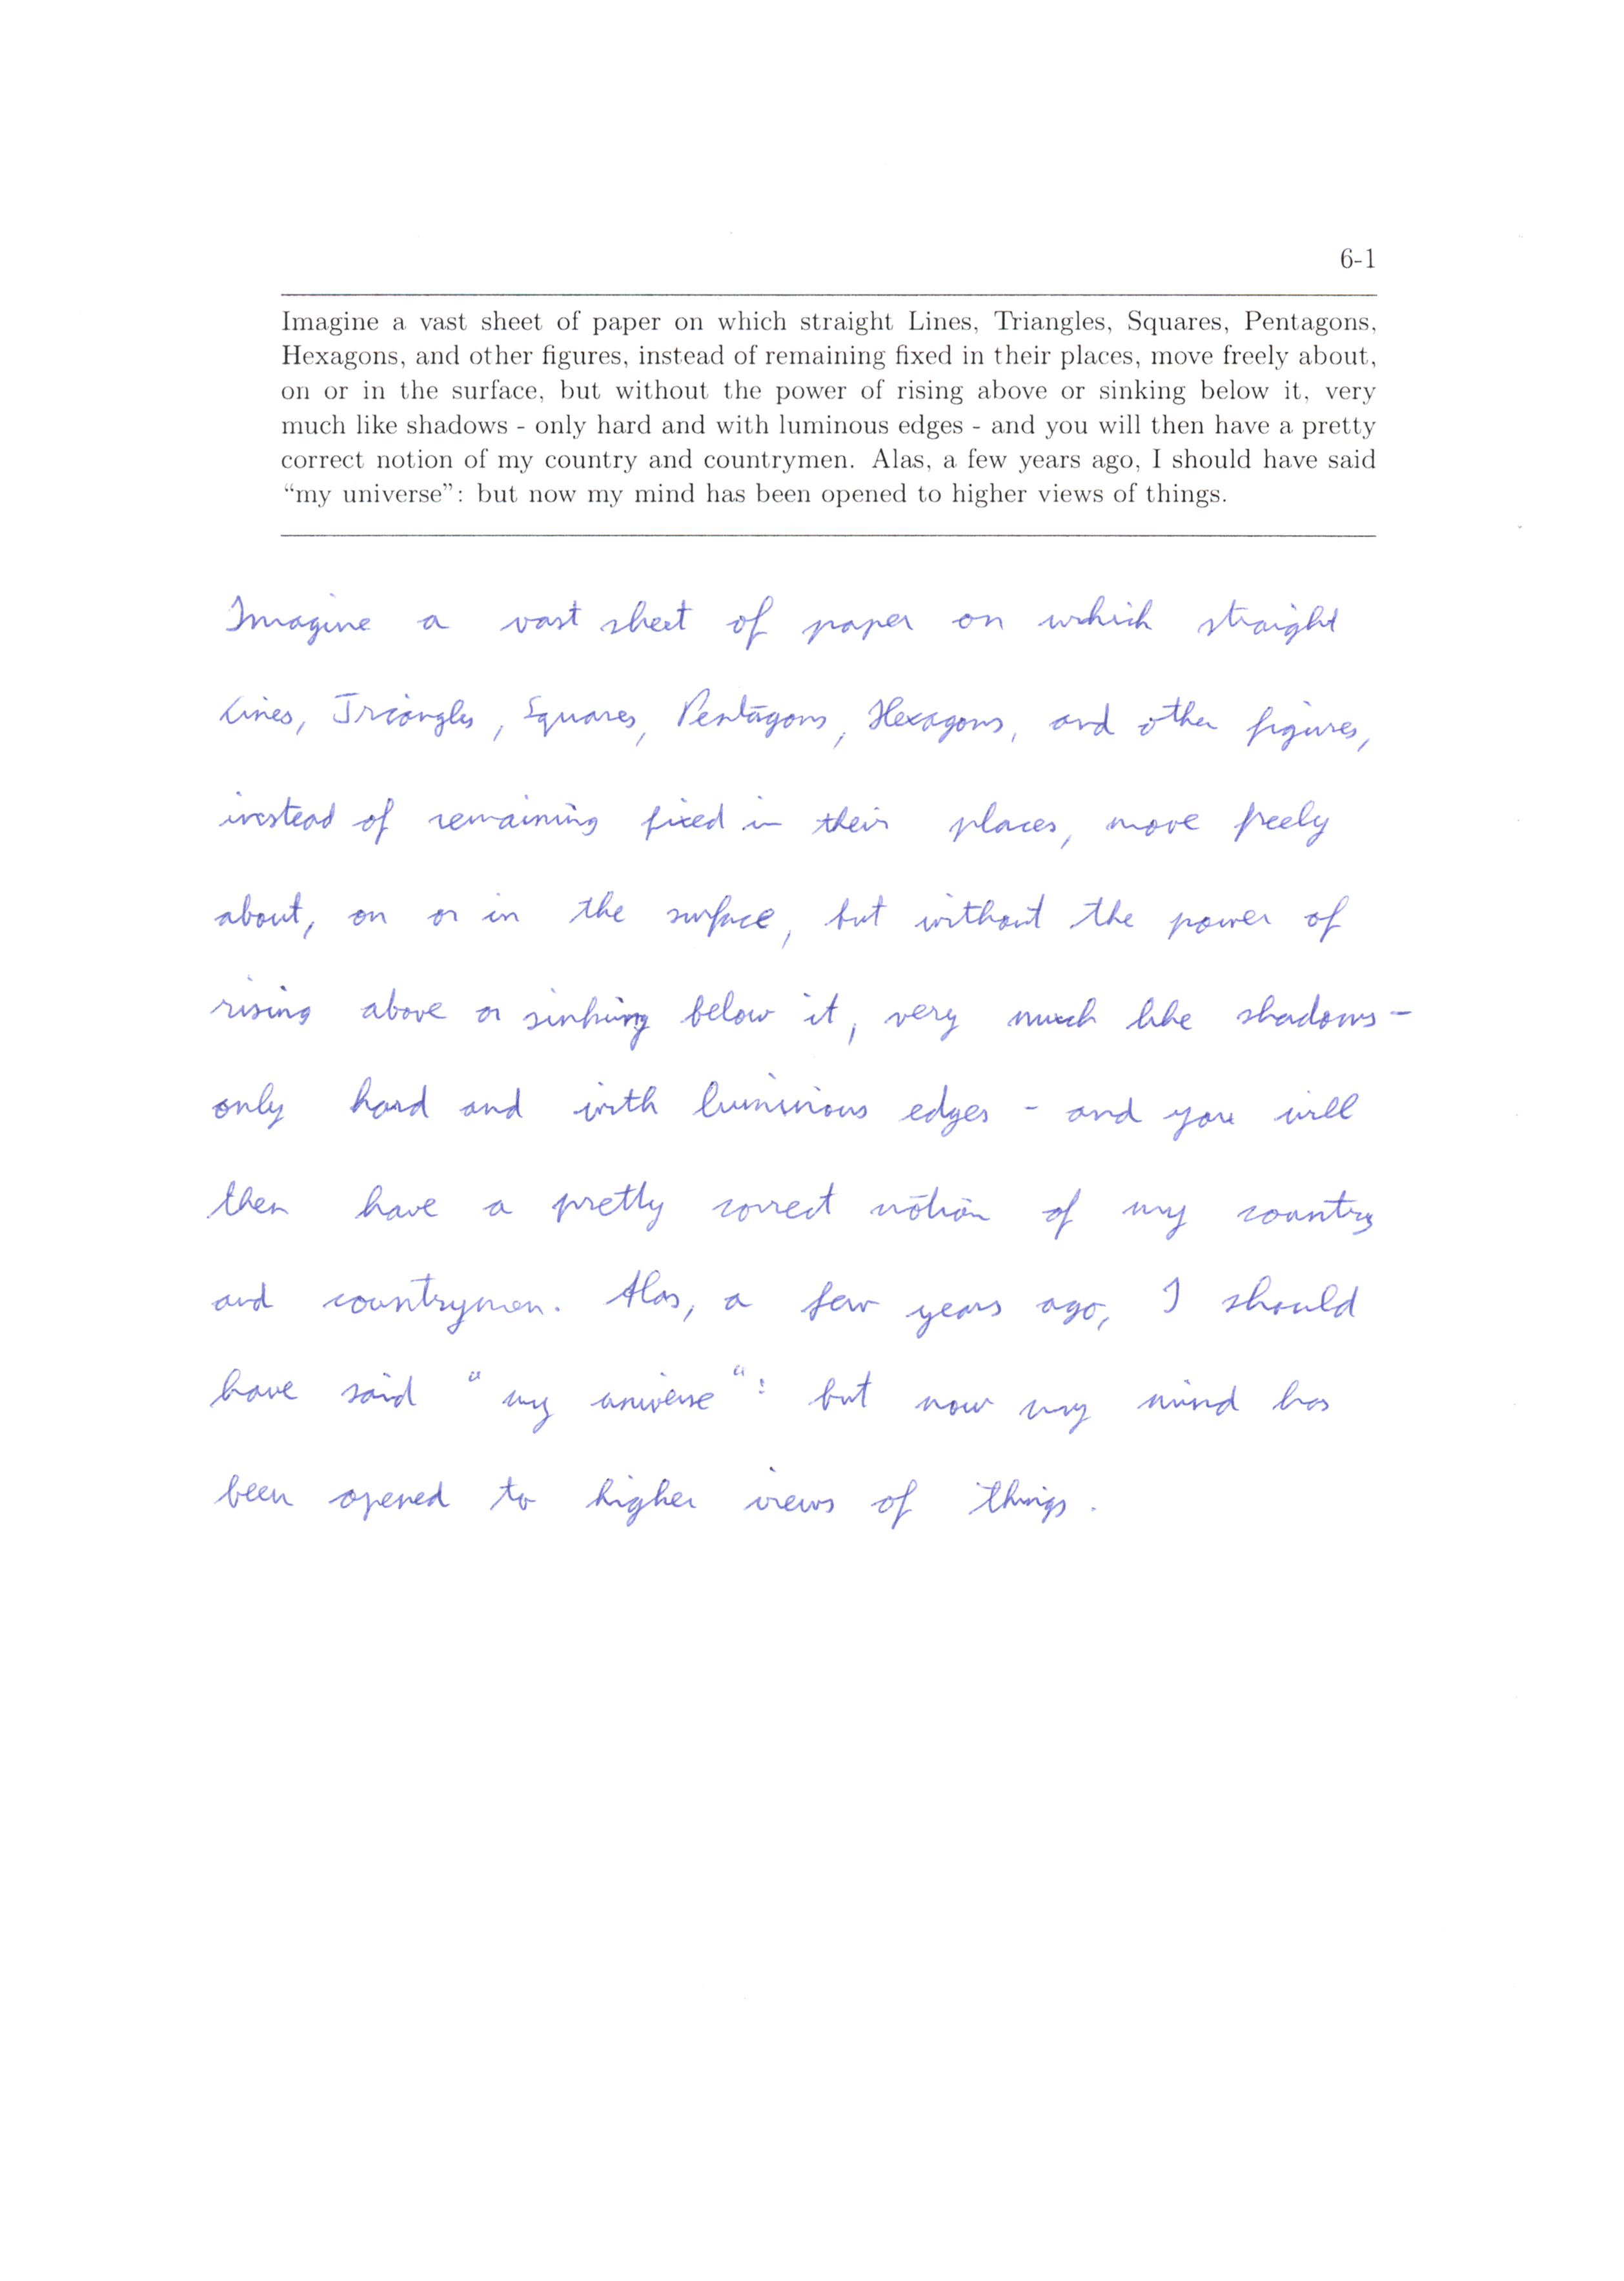 6-1
Imagine a vast sheet of paper on which straight Lines, Triangles, Squares, Pentagons,
Hexagons, and other figures, instead of remaining fixed in their places, move freely about,
on or in the surface, but without the power of rising above or sinking below it, very
much like shadows - only hard and with luminous edges - and you will then have a pretty
correct notion of my country and countrymen. Alas, a few years ago, I should have said
“my universe”: but now my mind has been opened to higher views of things.
Imagine a vast sheet of paper on which straight
Lines, Triangles, Squares, Pentagons, Hexagons, and other figures,
instead of remaining fixed in their places, move freely
about, on or in the surface, but without the power of
rising above or sinking below it, very much like shadows -
only hard and with luminious edges - and you will
then have a pretty correct notion of my country
and countrymen. Alas, a few years ago, I should
have said “my universe“: but now my mind has
been opened to higher views of things.